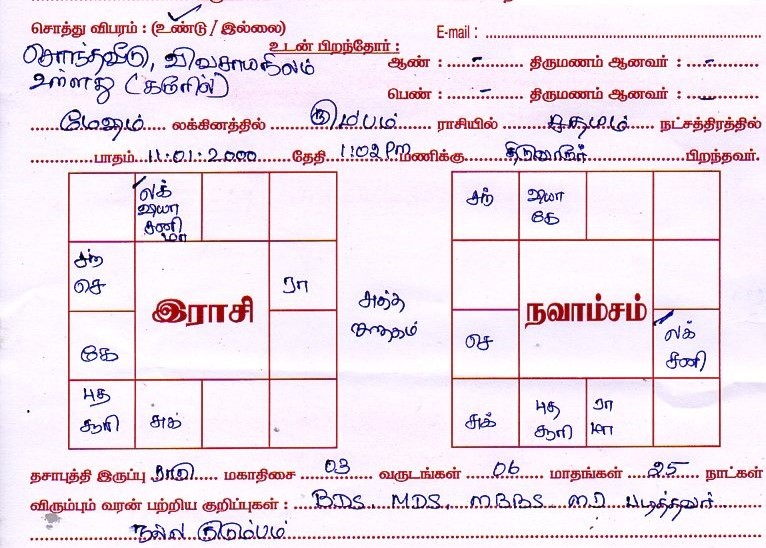 சொத்து விபரம் : (உண்டு / இல்லை)
E-mail :
சொந்தவீடு, விவசாயநிலம்
உடன் பிறந்தோர் :
ஆண் : - திருமணம் ஆனவர் : -
உள்ளது
பெண் : - திருமணம் ஆனவர் : -
மேஷம் லக்கினத்தில் கும்பம் ராசியில் சதயம் நட்சத்திரத்தில்
பாதம் 11.01.2000 தேதி 1:02 PM மணிக்கு திருவாரூர் பிறந்தவர்.
லக்
வியா
சனி
மா
சந்
செ
ரா
கே
புத
சூரி
சுக்
இராசி
சுத்த
ஜாதகம்
சந்
வியா
கே
செ
லக்
சனி
சுக்
புத
சூரி
ரா
மா
நவாம்சம்
தசாபுத்தி இருப்பு ராகு மகாதிசை 03 வருடங்கள் 06 மாதங்கள் 25 நாட்கள்
விரும்பும் வரன் பற்றிய குறிப்புகள் : BDS, MDS, MBBS, MD படித்தவர்
நல்ல குடும்பம்